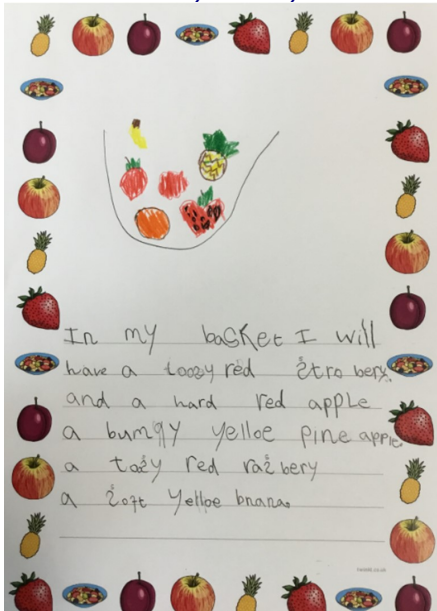 In my basket I will
have a toozy red stro bery.
and a hard red apple
a bumpy yelloe pine apple.
a tozy red raz bery
a soft yelloe bnana.